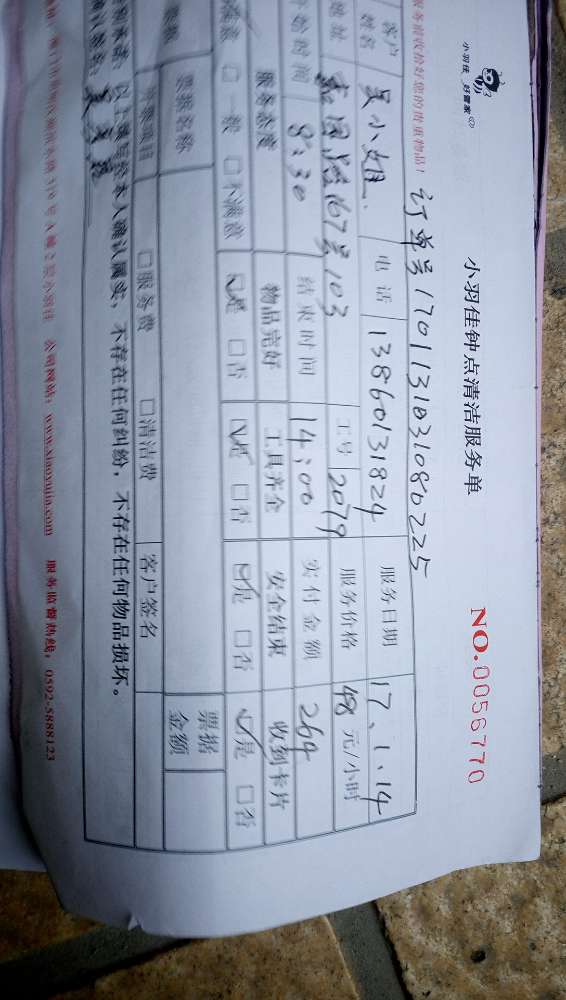 小羽佳 好管家
小羽佳钟点清洁服务单
NO.0056770
服务前收拾好您的贵重物品！ 订单号1701131031080225
客户姓名 吴小姐 电话 13860131824 服务日期 17、1、14
地址 167号103 工号 2079 服务价格 48 元/小时
开始时间 8:30 结束时间 14:00 实付金额 264
服务态度 物品完好 工具齐全 安全结束 收到卡片
满意 □一般 □不满意 □是 □否 □是 □否 □是 □否 □是 □否
票据名称 票据金额
项目 □服务费 □清洁费 客户签名
以上填写经本人确认属实，不存在任何纠纷，不存在任何物品损坏。
公司网站：www.xiaoyujia.com 服务监督热线：0592-5888123